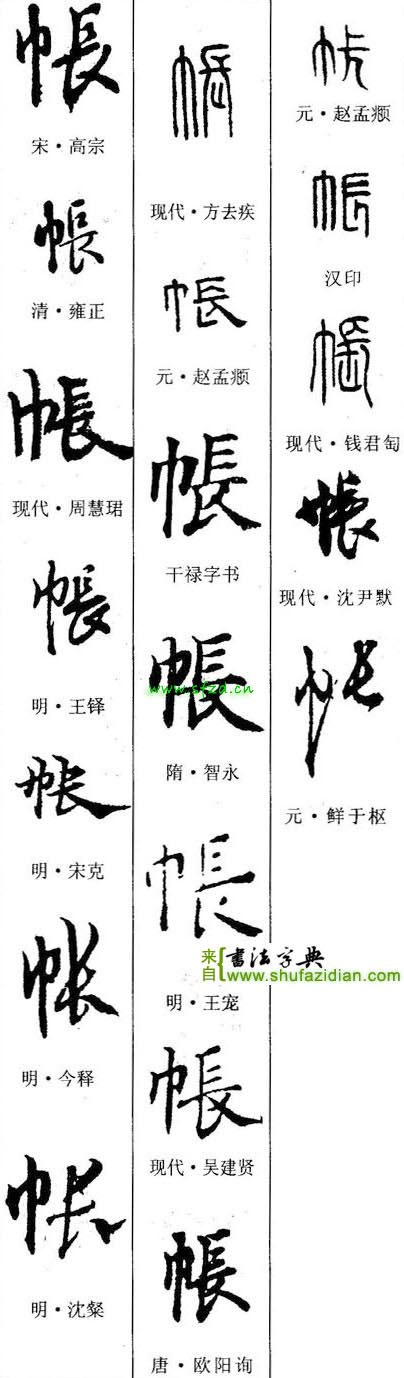 帳
宋·高宗
帳
清·雍正
帳
现代·周慧珺
帳
明·王铎
帳
明·宋克
帳
明·今释
帳
明·沈粲
帳
现代·方去疾
帳
元·赵孟頫
帳
干禄字书
帳
www.sfzd.cn
隋·智永
帳
明·王宠
帳
现代·吴建贤
帳
唐·欧阳询
帳
元·赵孟頫
帳
汉印
帳
现代·钱君匋
帳
现代·沈尹默
帳
元·鲜于枢
来自 書法字典
www.shufazidian.com